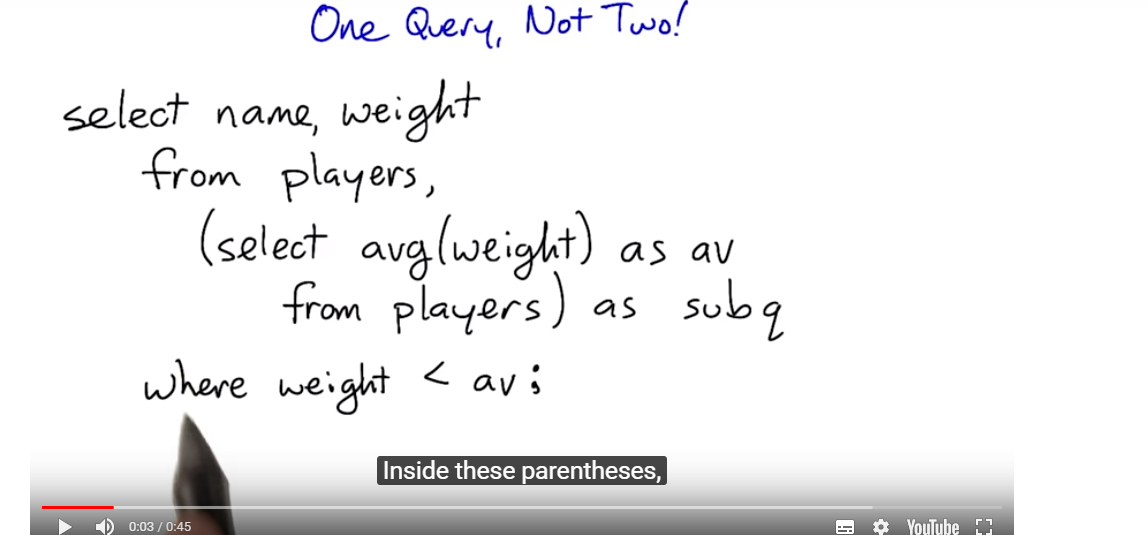 One Query, Not Two!
select name, weight
from players,
(select avg(weight) as av
from players) as subq
where weight < av;
Inside these parentheses,
0:03 / 0:45
YouTube